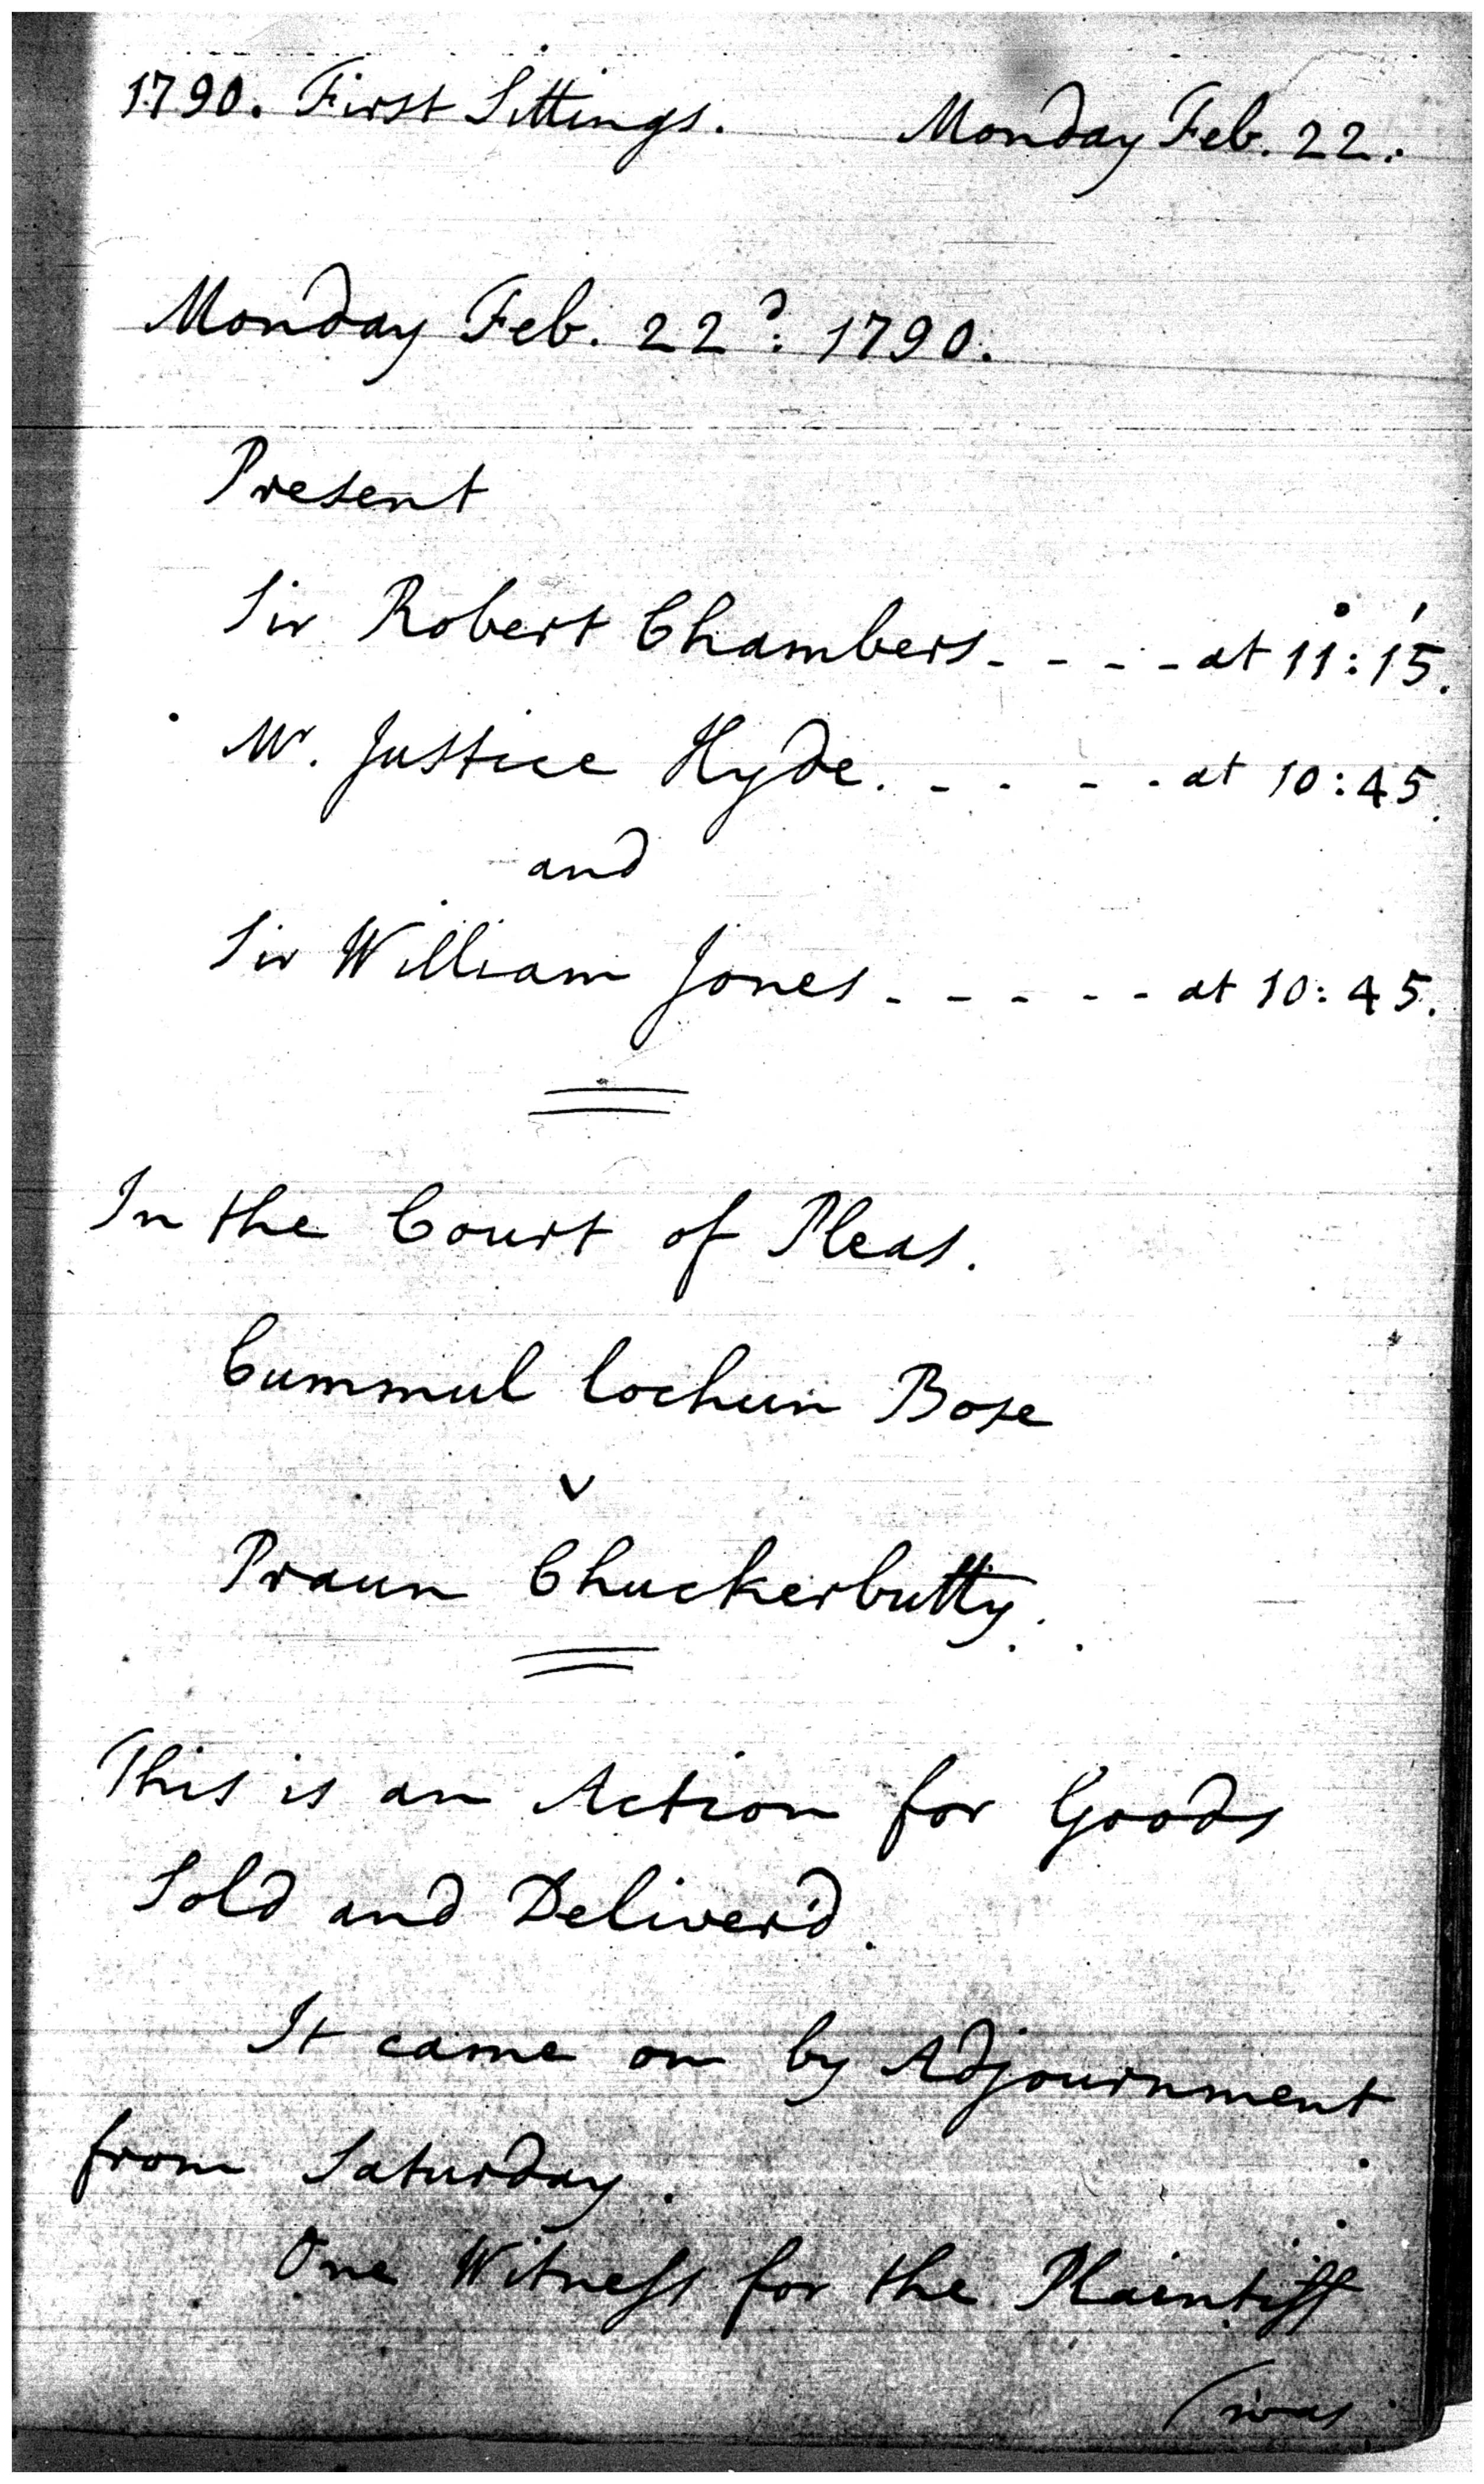 1790. First Sittings. Monday Feb. 22.
Monday Feb. 22d: 1790.
Present
Sir Robert Chambers - - - - at 11°: 15'.
Mr. Justice Hyde. - - - - at 10:45.
and
Sir William Jones - - - - - at 10:45.
In the Court of Pleas.
Cummul lochun Bose
v
Praun Chuckerbutty.
This is an Action for Goods
Sold and Deliver'd.
It came on by Adjournment
from Saturday.
One Witness for the Plaintiff
(was